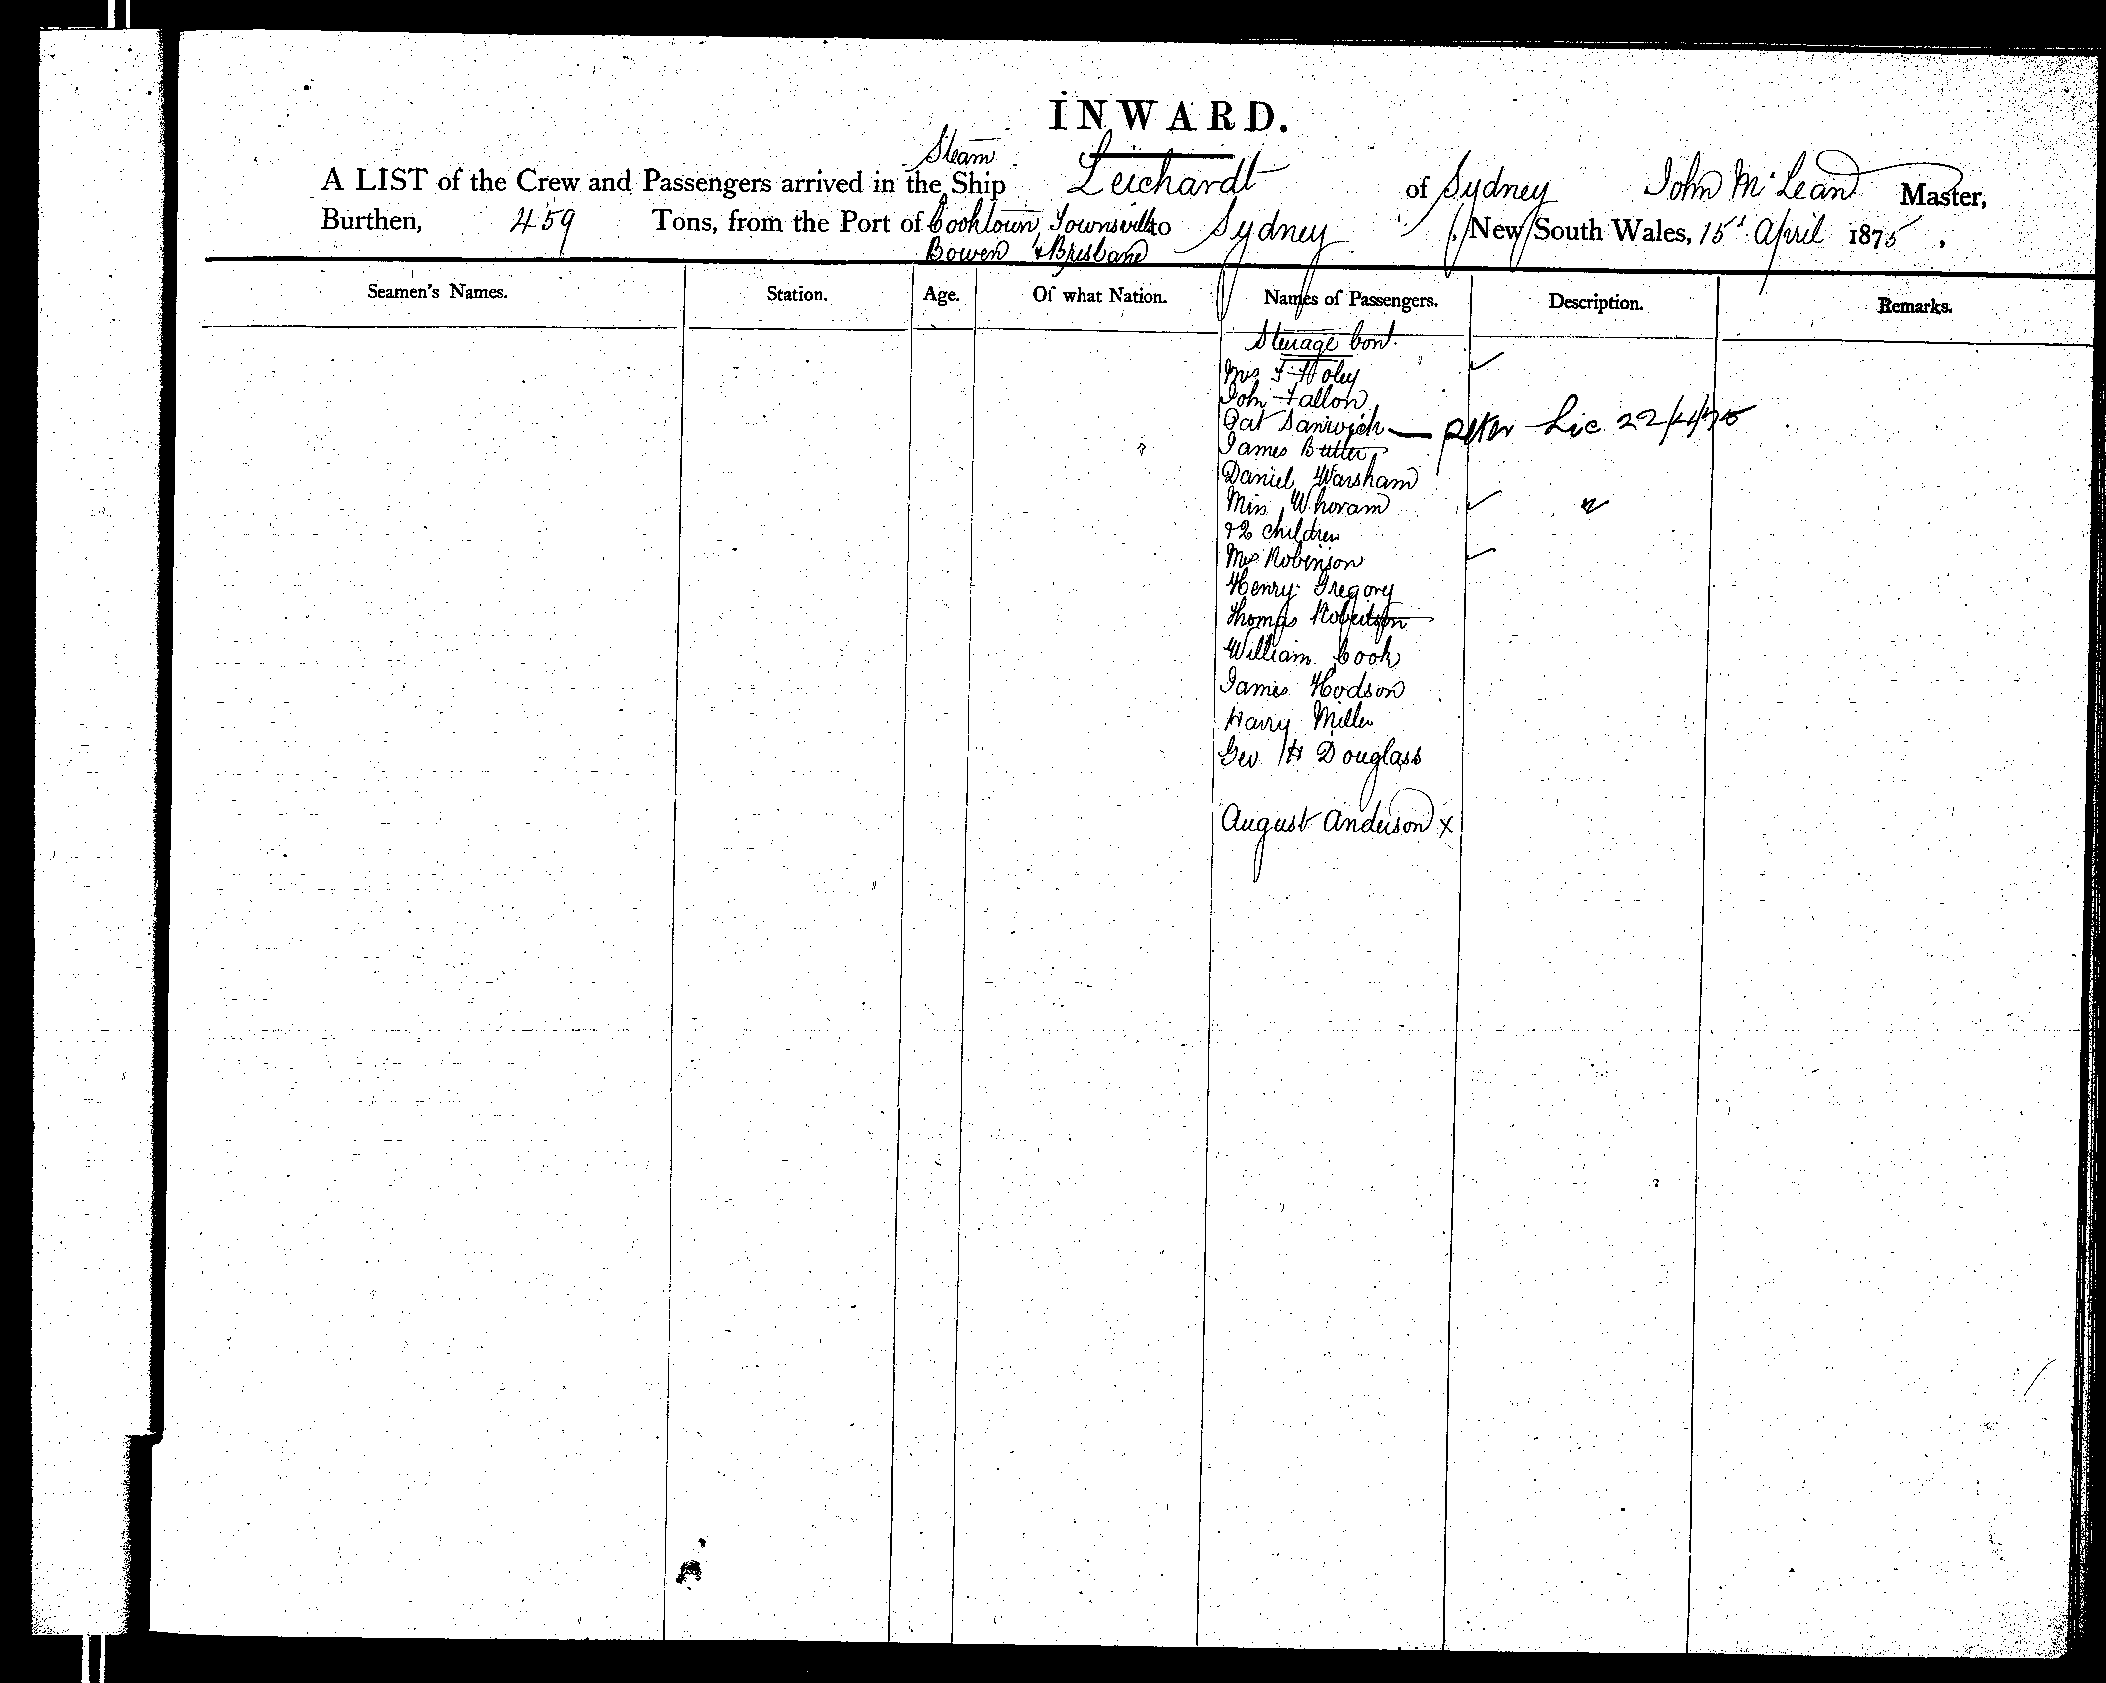 INWARD.
Steam
A LIST of the Crew and Passengers arrived in the Ship Leichardt of Sydney John McLean Master,
Burthen, 459 Tons, from the Port of Cooktown, Townsville to Sydney New South Wales, 15 April 1875.
Bowen & Brisbane
Seamen's Names. Station. Age. Of what Nation. Names of Passengers. Description. Remarks.
Steerage Cont.
Mrs F
John Fallon
Pat — Peter Lic 22/4/75
James Butter
Daniel Warsham
Whoram
& 2 children
Mrs Robinson
Henry Gregory
Thomas Robertson
William Cook
James Hodson
Harry Miller
Geo H Douglass
August Anderson x